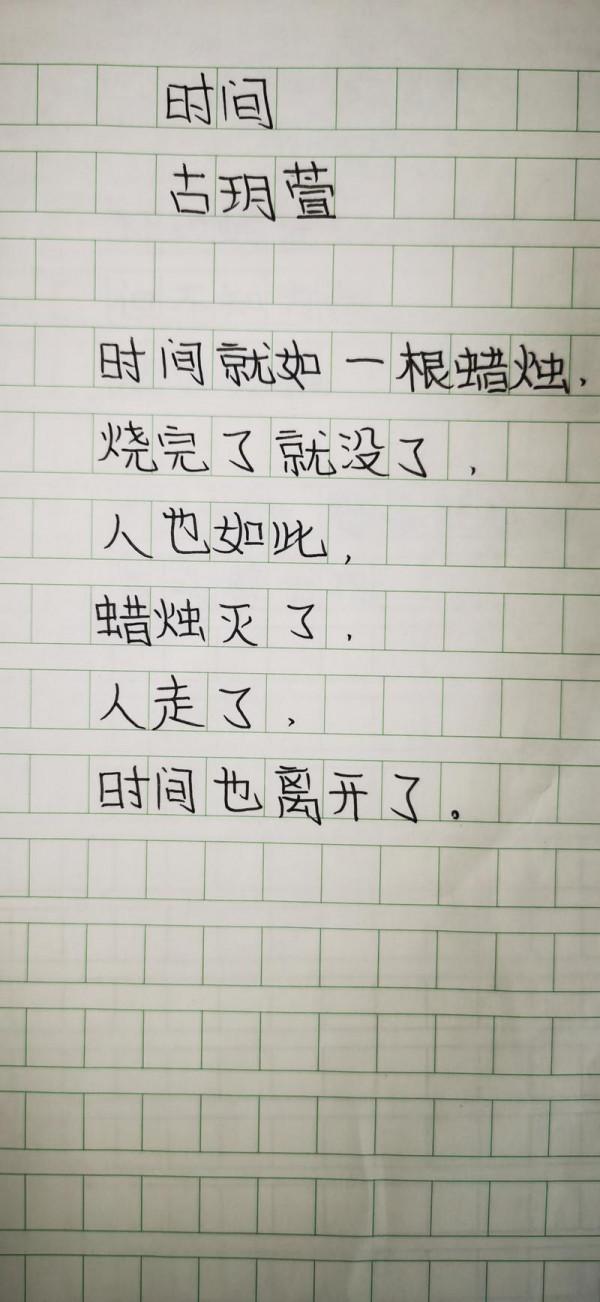 时间
古玥萱
时间就如一根蜡烛，
烧完了就没了，
人也如此，
蜡烛灭了，
人走了，
时间也离开了。